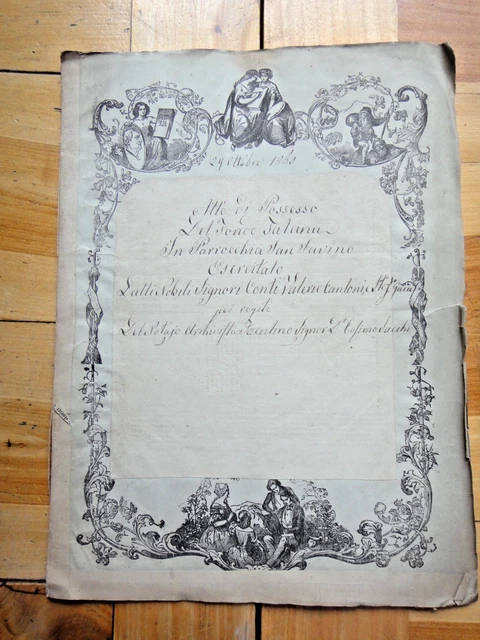 29 Ottobre 1863
Atto di Possesso
Del Fondo
In Parrocchia San Savino
Esercitato
Dalli Nobili Signori Conti Valerio Cantoni
per rogiti
Del Notajo Archivista Faentino Signor Dr